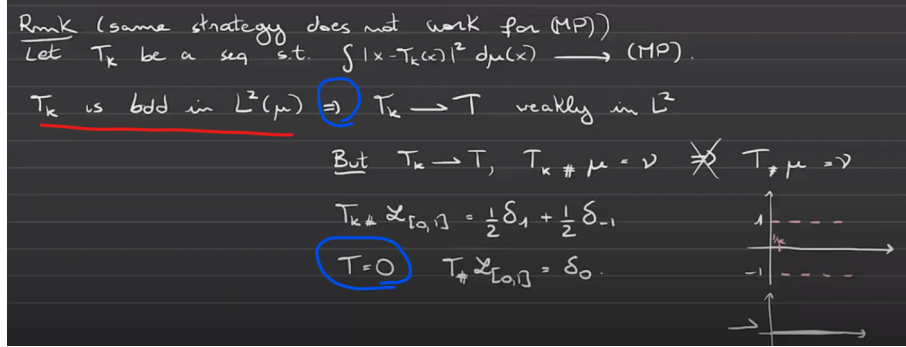 Rmk (same strategy does not work for (MP))
Let T_k be a seq s.t. ∫ |x - T_k(x)|² dμ(x) ⟶ (MP).
T_k is bdd in L²(μ) ⇒ T_k ⟶ T weakly in L²
But T_k ⟶ T, T_k # μ = ν ⇏ T_# μ = ν
T_k# ℒ_[0,1] = 1/2 δ_1 + 1/2 δ_-1
T = 0 T_# ℒ_[0,1] = δ_0.
1
1/k
-1